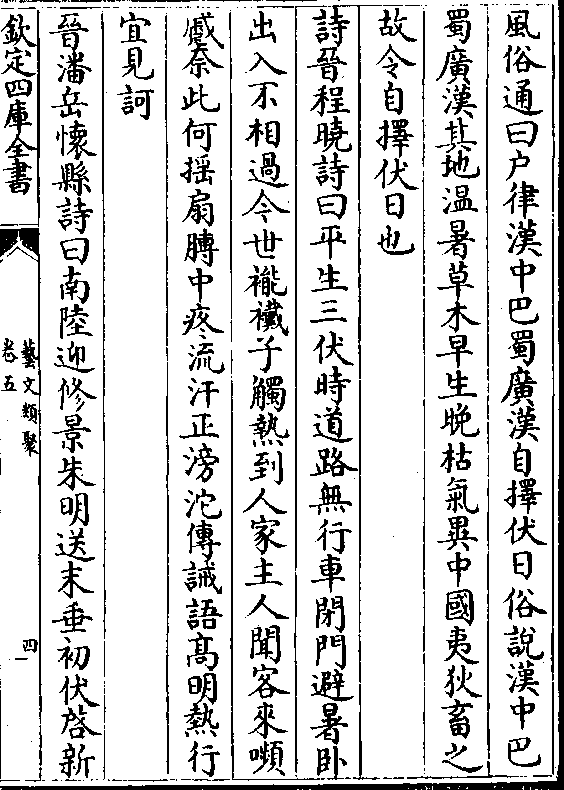 風俗通曰户律漢中巴蜀廣漢自擇伏日俗說漢中巴
蜀廣漢其地温暑草木早生晩枯氣異中國夷狄畜之
故令自擇伏日也
詩晉程曉詩曰平生三伏時道路無行車閉門避暑卧
出入不相過今世褦襶子觸熱到人家主人聞客來嚬
慼奈此何揺扇髆中疼流汗正滂沱傳誡語髙明熱行
宜見訶
晉潘岳懷縣詩曰南陸迎修景朱明送末垂初伏啓新
欽定四庫全書
藝文類聚
卷五
四